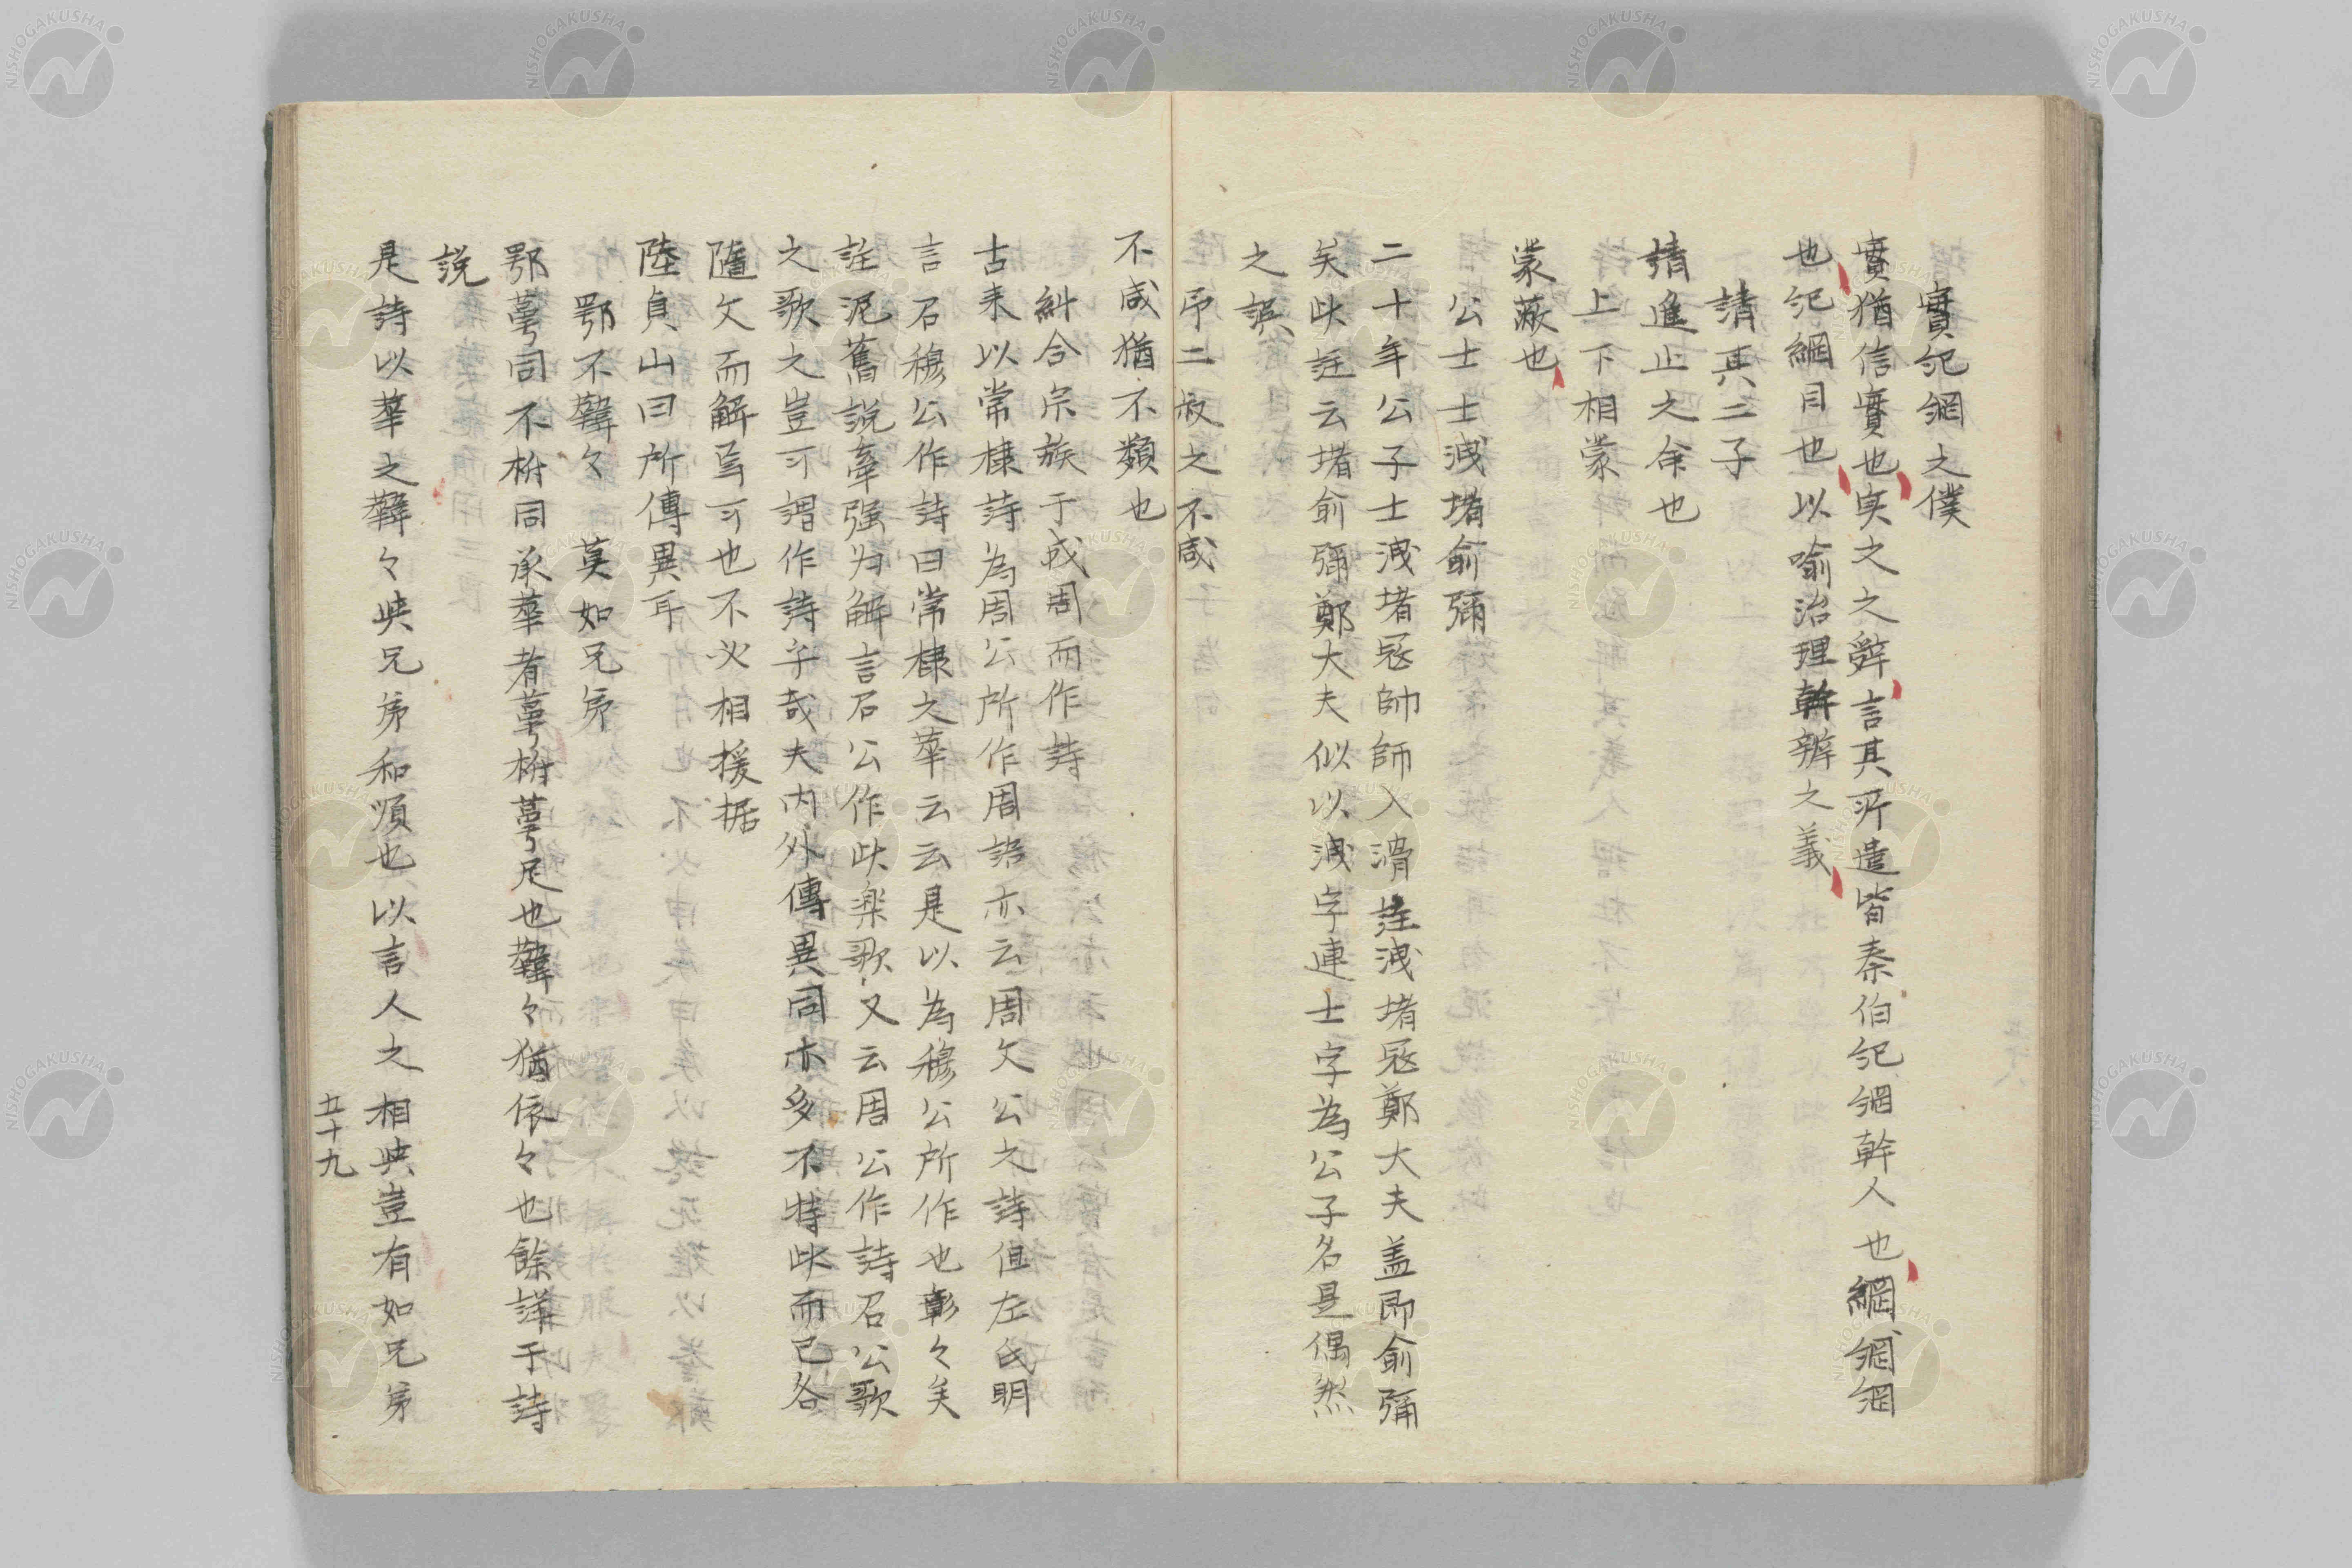 實紀綱之僕
實猶信實也実之之辭言其所遣皆秦伯紀綱幹人也綱網網
也紀網目也以喻治理幹辨之義
請其二子
請進止之命也
上下相蒙
蒙蔽也
公士士洩堵俞彌
二十年公子士洩堵寇帥師入滑註洩堵寇鄭大夫盖即俞彌
矣此註云堵俞彌鄭大夫似以洩字連士字為公子名是偶然
之誤
弔二叔之不咸
不咸猶不類也
糾合宗族于成周而作詩
古来以常棣詩為周公所作周語亦云周文公之詩但左氏明
言召穆公作詩曰常棣之華云云是以為穆公所作也彰々矣
註泥舊說牽强为解言召公作此楽歌又云周公作詩召公歌
之歌之豈可謂作詩乎哉夫内外傳異同亦多不特此而已各
隨文而解焉可也不必相援据
陸貞山曰所傳異耳
鄂不韡々 莫如兄弟
鄂蕚同不柎同承華者蕚柎蕚足也韡々猶依々也餘詳于詩
説
是詩以華之韡々映兄弟和順也以言人之相映豈有如兄弟
五十九
NISHOGAKUSHA